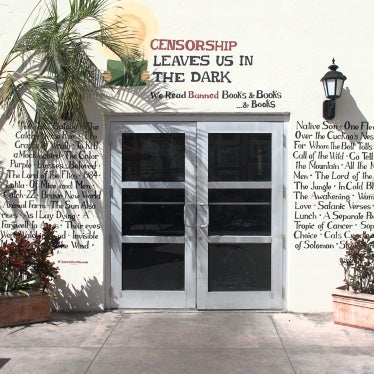 CENSORSHIP
LEAVES US IN
THE DARK
We Read Banned Books & Books
...& Books
The
Catch
Grapes of Wrath · To Kill
a Mockingbird · The Color
Purple · Ulysses · Beloved
The Lord of the Flies · 1984 ·
Lolita · Of Mice and Men
Catch-22 · Brave New World
Animal Farm · The Sun Also
Rises · As I Lay Dying · A
Farewell to Arms · Their eyes
Invisible
the Wind ·
Native Son · One Flew
Over the Cuckoo's Nest
For Whom the Bell Tolls
Call of the Wild · Go Tell
the Mountain · All the
Men · The Lord of the
The Jungle · In Cold Bl
The Awakening ·
Love · Satanic Verses
Lunch · A Separate
Tropic of Cancer ·
Choice · Cat's
of Solomon ·